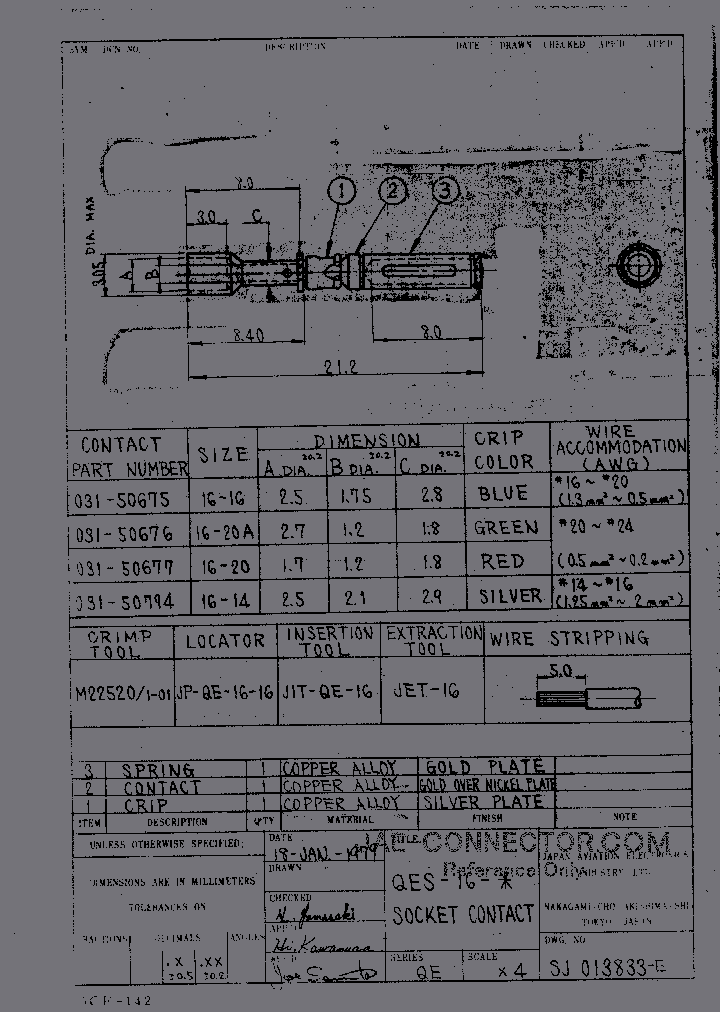 SYM DCN NO. DESCRIPTION DATE DRAWN CHECKED APP'D APP'D
1 2 3
7.0
3.0 C
3.05 DIA. MAX
A B
8.40 8.0
21.2
CONTACT PART NUMBER SIZE DIMENSION CRIP COLOR WIRE ACCOMMODATION (AWG)
A DIA. ±0.2 B DIA. ±0.2 C DIA. ±0.2
031-50675 16-16 2.5 1.75 2.8 BLUE #16 ~ #20 (1.3mm² ~ 0.5mm²)
031-50676 16-20A 2.7 1.2 1.8 GREEN #20 ~ #24
031-50677 16-20 1.7 1.2 1.8 RED (0.5mm² ~ 0.2mm²)
031-50794 16-14 2.5 2.1 2.9 SILVER #14 ~ #16 (1.25mm² ~ 2mm²)
CRIMP TOOL LOCATOR INSERTION TOOL EXTRACTION TOOL WIRE STRIPPING
M22520/1-01 JP-QE-16-16 JIT-QE-16 JET-16 5.0
3 SPRING 1 COPPER ALLOY GOLD PLATE
2 CONTACT 1 COPPER ALLOY GOLD OVER NICKEL PLATE
1 CRIP 1 COPPER ALLOY SILVER PLATE
ITEM DESCRIPTION Q'TY MATERIAL FINISH NOTE
UNLESS OTHERWISE SPECIFIED;
DIMENSIONS ARE IN MILLIMETERS
TOLERANCES ON
FRACTIONS DECIMALS ANGLES
.X .XX
±0.5 ±0.2
DATE
18-JAN.-1979
DRAWN
CHECKED
APP'D
Hi. Kawamura
APP'D
TITLE
JAE-CONNECTOR.COM
Reference Only
QES-16-*
SOCKET CONTACT
SERIES
QE
SCALE
×4
JAPAN AVIATION ELECTRONICS
INDUSTRY LTD.
NAKAGAMI-CHO AKISHIMA-SHI
TOKYO JAPAN
DWG. NO.
SJ 013833-E